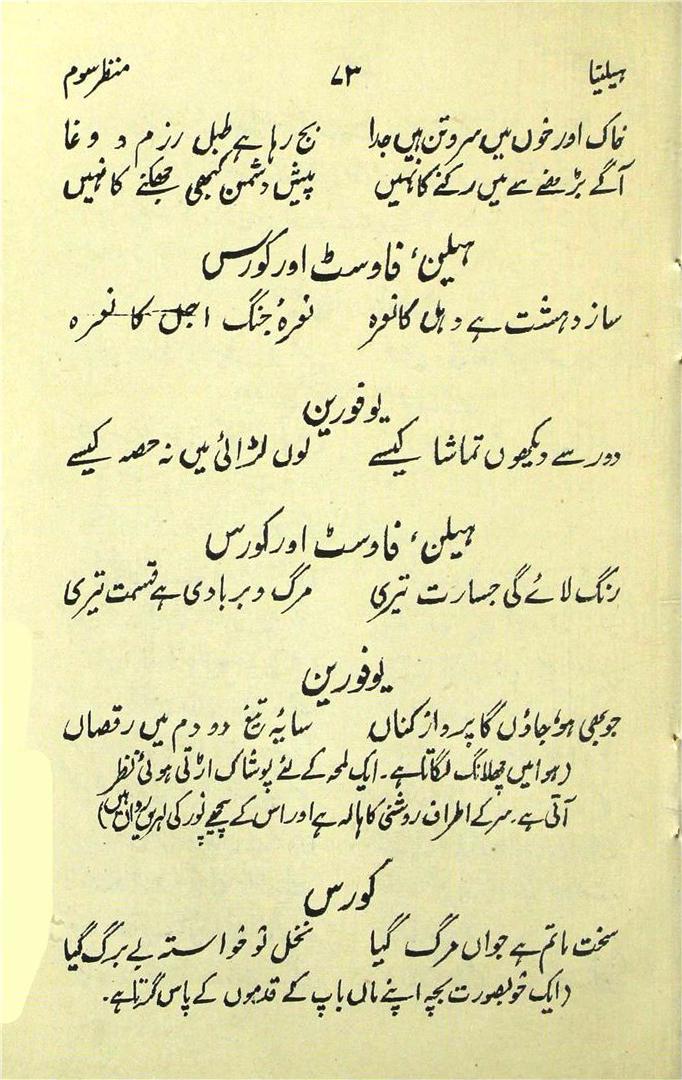 ہیلینا ۷۳ منظر سوم
خاک اور خوں میں سر و تن ہیں جدا بج رہا ہے طبل رزم و وغا
آگے بڑھنے سے میں رکنے کا نہیں پیش دشمن کبھی جھکنے کا نہیں
ہیلن، فاوسٹ اور کورس
ساز دہشت ہے دہل کا نعرہ نعرۂ جنگ اجل کا نعرہ
یوفورین
دور سے دیکھوں تماشا کیسے لوں لڑائی میں نہ حصہ کیسے
ہیلن، فاوسٹ اور کورس
رنگ لائے گی جسارت تیری مرگ و بربادی ہے قسمت تیری
یوفورین
جو بھی ہو جاؤں گا پرواز کناں سایۂ تیغ دو دم میں رقصاں
(ہوا میں چھلانگ لگاتا ہے۔ ایک لمحہ کے لئے پوشاک اڑتی ہوئی نظر
آتی ہے۔ سر کے اطراف روشنی کا ہالہ ہے اور اس کے پیچھے نور کی لہریں رواں ہیں)
کورس
سخت ماتم ہے جواں مرگ گیا نخل نو خواستہ بے برگ گیا
(ایک خوبصورت بچہ اپنے ماں باپ کے قدموں کے پاس گرتا ہے۔